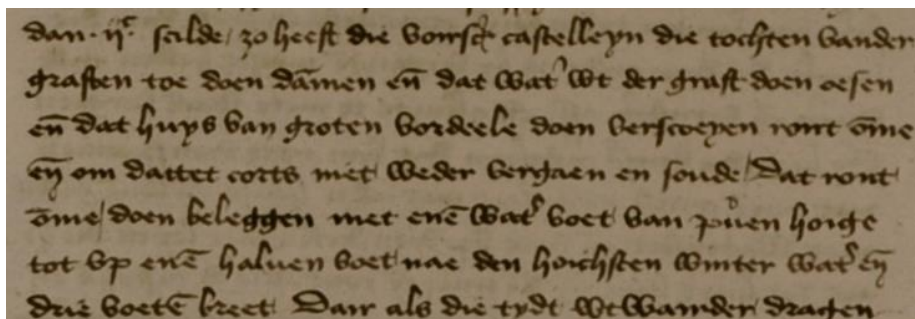 dan · ijᶜ · scilde / zo heeft die voirsc̄ castelleyn die tochten vander
graften toe doen dāmen en̄ dat wat' wt der graft doen oesen
en̄ dat huys van groten vordeele doen verscoeyen ront ōme
en̄ om dattet corts niet weder vergaen en soude / Dat ront
ōme / doen beleggen met enē wat' voet van pūen hoige
tot vp enē halven voet nae den hoichsten winter wat' en̄
drie voetē breet Dair als die tydt wtwainder dragen